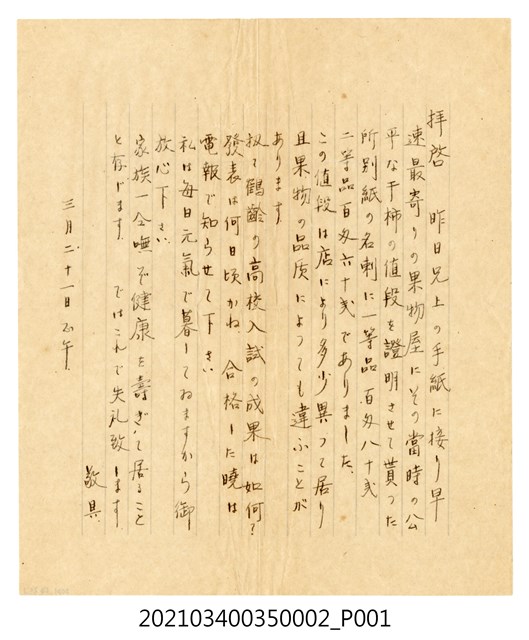 拝啓 昨日兄上の手紙に接り早
速最寄りの果物屋にその當時の公
平な干柿の値段を證明させて貰つた
所別紙の名刺に一等品百匁八十弐
二等品百匁六十弐でありました。
この値段は店により多少異つて居り
且果物の品质によつても違ふことが
あります。
扨て鶴齢の高校入試の成果は如何?
發表は何日頃かね 合格した曉は
電報で知らせて下さい
私は毎日元氣で暮してゐますから御
放心下さい。
家族一仝嘸ぞ健康を壽ぎて居ること
と存じます。 ではこれで失礼致します
敬具
三月二十一日正午
202103400350002_P001